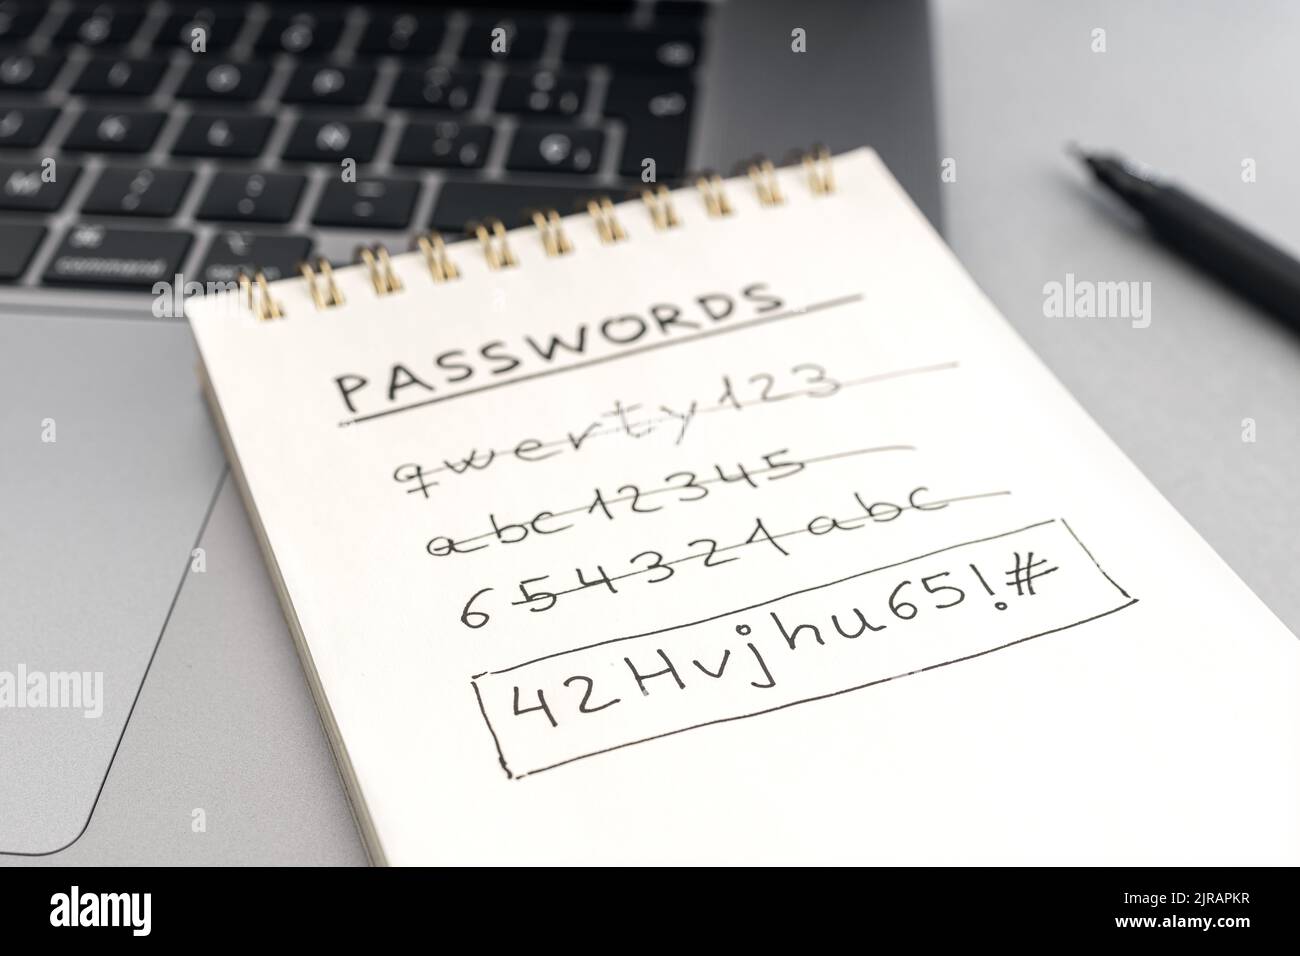 command
PASSWORDS
qwerty123
abc12345
654321abc
42Hvjhu65!#
alamy
a
alamy
Image ID: 2JRAPKR
www.alamy.com